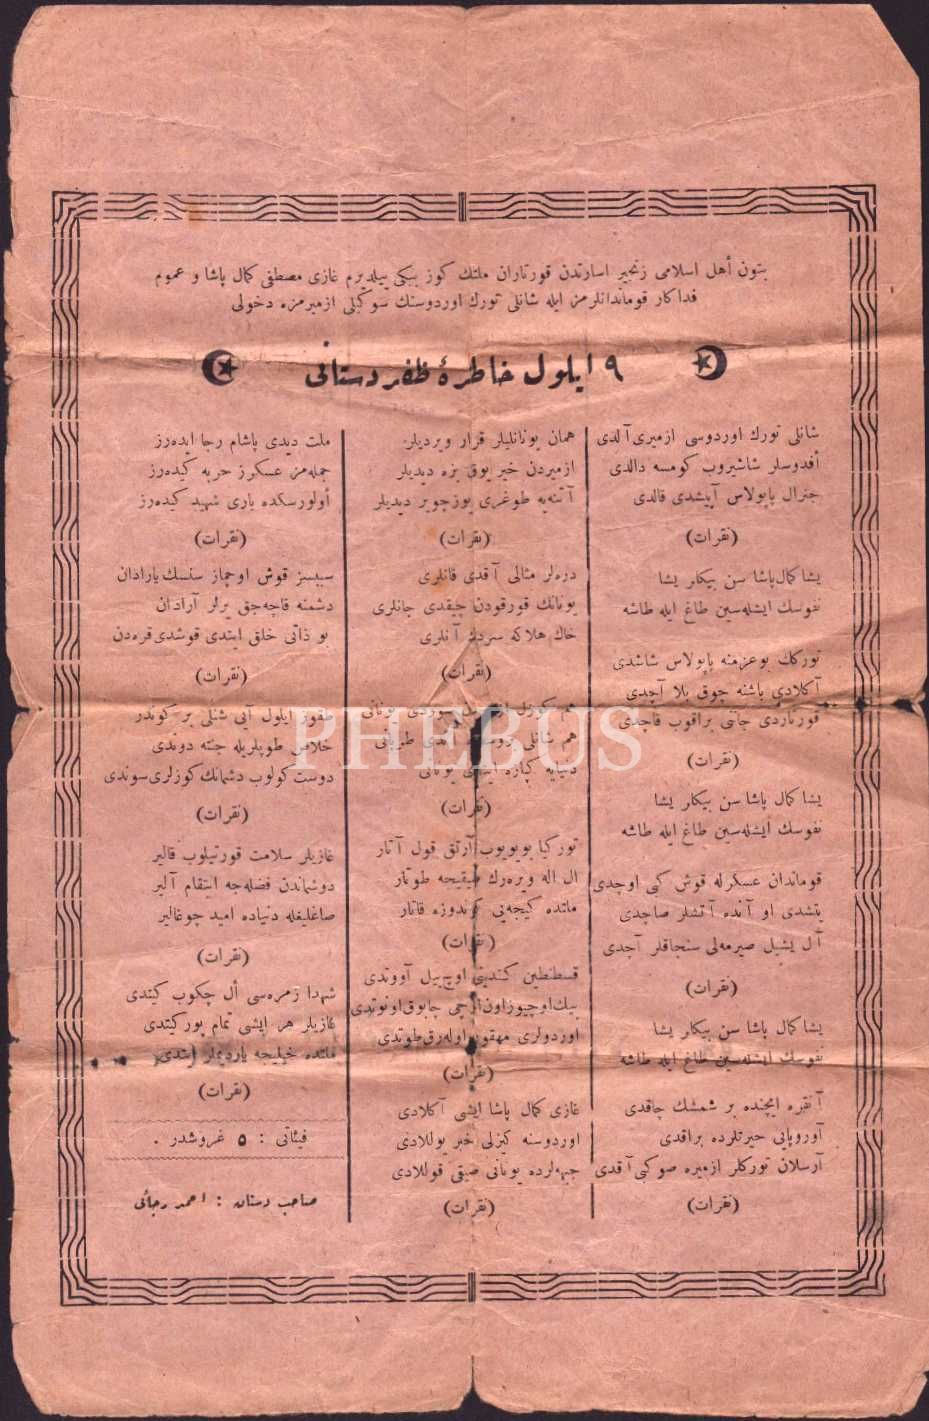 بتون أهل اسلامى زنجير اسارتدن قورتاران ملتك كوز ببكى ييلديرم غازى مصطفى كمال پاشا و عموم
فداكار قوماندانلرمز ايله شانلى تورك اوردوسنك سوكيلى ازميرمزه دخولى
٩ ايلول خاطرهٔ ظفر دستانى
شانلى تورك اوردوسى ازميرى آلدى
أفدوسلر شاشيروب كومسه دالدى
جنرال پاپولاس آپيشدى قالدى
(نقرات)
يشا كمال پاشا سن بيكلر يشا
نفوسك ايشله‌سين طاغ ايله طاشه
توركك بو عزمنه پاپولاس شاشدى
آكلادى باشنه چوق بلا آچدى
قورتاردى جانى براقوب قاچدى
(نقرات)
يشا كمال پاشا سن بيكلر يشا
نفوسك ايشله‌سين طاغ ايله طاشه
قوماندان عسكرله قوش كبى اوچدى
يتشدى او آنده آتشلر صاچدى
آل يشيل صيرمه‌لى سنجاقلر آچدى
(نقرات)
يشا كمال پاشا سن بيكلر يشا
نفوسك ايشله‌سين طاغ ايله طاشه
آنقره ايچنده بر شمشك چاقدى
آوروپايى حيرتلرده براقدى
آرسلان توركلر ازميره صو كبى آقدى
(نقرات)
همان يونانليلر قرار ويرديلر
ازميردن خير يوق بزه ديديلر
آتنه‌يه طوغرى يوز چوير ديديلر
(نقرات)
دره‌لر مثالى آقدى قانلرى
يونانك قورقودن چيقدى جانلرى
خاك هلاكه سردك آنلرى
(نقرات)
هم كوزل يونانى
هم شانلى طوپانى
دنيايه كپازه يونانى
(نقرات)
توركيا بويويوب آرتق قول آتار
ال اله ويره‌رك صيقيجه طوتار
ماتده كيجه‌يى كوندوزه قاتار
(نقرات)
قسطنطين كندينى اوچ ييل آووتدى
بيك اوچيوز اون چابوق اونوتدى
اوردولرى مقهور اوله‌رق طوتدى
(نقرات)
غازى كمال پاشا ايشى آكلادى
اوردوسنه كيزلى خبر يوللادى
جبهه‌لرده يونانى صيقى قوللادى
(نقرات)
ملت ديدى پاشام رجا ايده‌رز
جمله‌مز عسكرز حربه كيده‌رز
أولورسكده بارى شهيد كيده‌رز
(نقرات)
سببسز قوش اوچماز سنسك يارادان
دشمنه قاچه‌جق يرلر آرادان
بو ذاتى خلق ايتدى قوشدى قره‌دن
(نقرات)
طقوز ايلول آيى شنلى بر كوندر
خلاص طوپلريله جنه دوندى
دوست كولوب دشمانك كوزلرى سوندى
(نقرات)
غازيلر سلامت قورتيلوب قالير
دوشماندن فضله‌جه انتقام آلير
صاغليغله دنياده اميد چوغالير
(نقرات)
شهدا زمره‌سى أل چكوب كيتدى
غازيلر هر ايشى تمام پور كيتدى
ملتده خيليجه ياردملر ايتدى
(نقرات)
فيئاتى : ٥ غروشدر .
صاحب دستان : احمد رجائى
PHEBUS